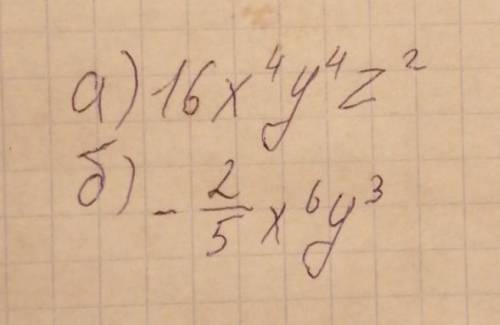 а) 16x⁴y⁴z²
б) -2/5 x⁶y³